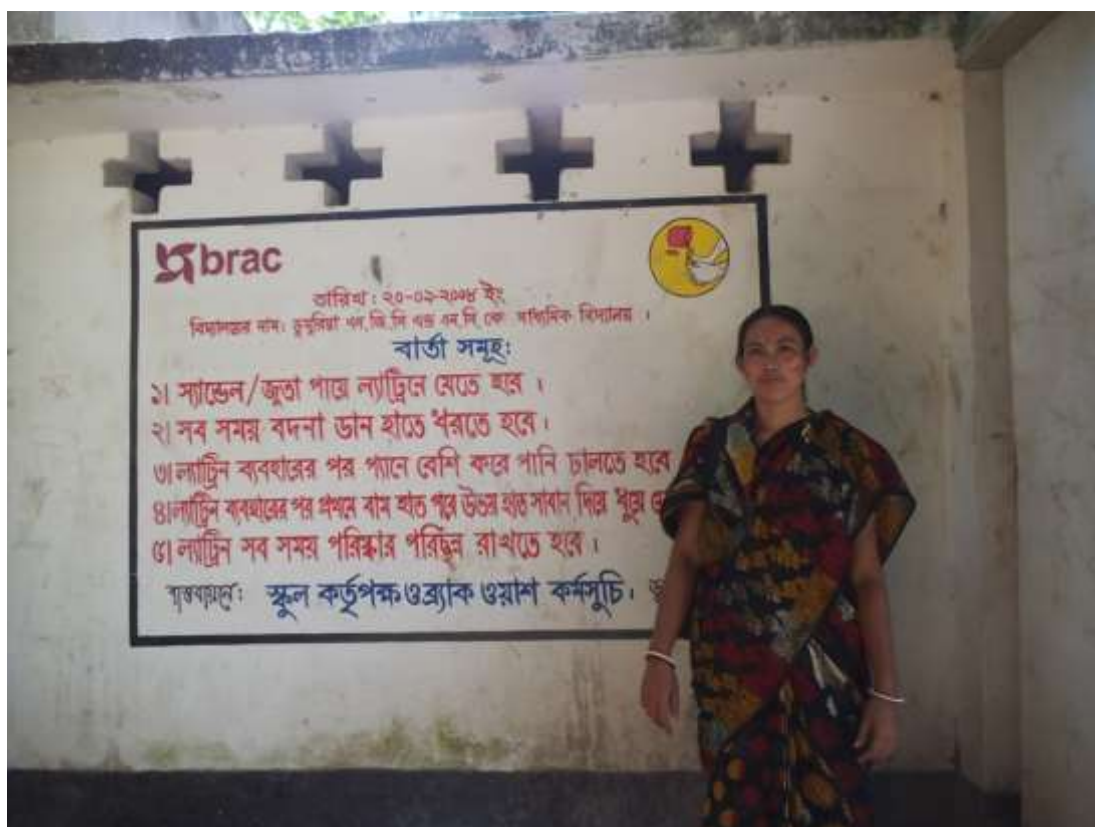 brac
তারিখ: ২০-০৯-২০০৮ ইং
বিদ্যালয়ের নাম: ডুমুরিয়া এন,জি,সি এন্ড এন,সি,কে মাধ্যমিক বিদ্যালয় ।
বার্তা সমূহ:
১। স্যান্ডেল/জুতা পায়ে ল্যাট্রিনে যেতে হবে ।
২। সব সময় বদনা ডান হাতে ধরতে হবে ।
৩। ল্যাট্রিন ব্যবহারের পর প্যানে বেশি করে পানি ঢালতে হবে
৪। ল্যাট্রিন ব্যবহারের পর প্রথমে বাম হাত পরে উভয় হাত সাবান দিয়ে ধুয়ে
৫। ল্যাট্রিন সব সময় পরিস্কার পরিছন্ন রাখতে হবে ।
বাস্তবায়নে: স্কুল কর্তৃপক্ষ ও ব্র্যাক ওয়াশ কর্মসুচি ।